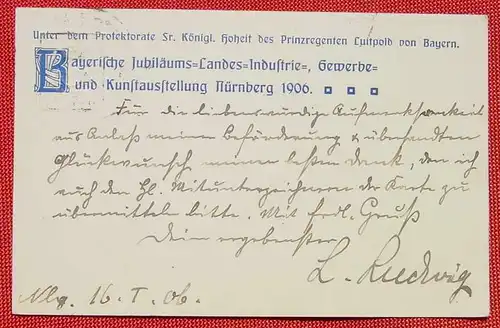 Unter dem Protektorate Sr. Königl. Hoheit des Prinzregenten Luitpold von Bayern.
Bayerische Jubiläums-Landes-Industrie-, Gewerbe-
und Kunstausstellung Nürnberg 1906.
Für die liebenswürdige Aufmerksamkeit
aus Anlaß meiner Beförderung & übersandten
Glückwunsch meinen besten Dank, den ich
auch den Hl. Mitunterzeichnern der Karte zu
übermitteln bitte. Mit frdl. Gruss
Dein ergebenster
L. Ludwig
Nbg. 16. I. 06.